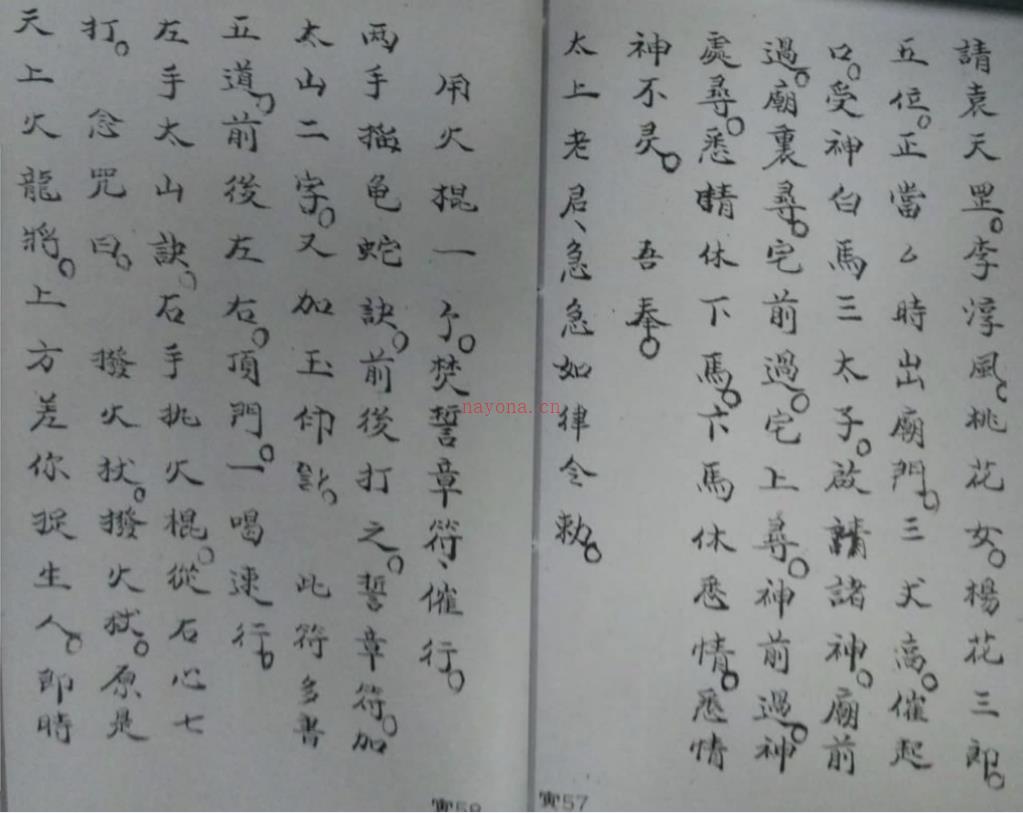 請袁天罡。李淳風。桃花女。楊花三郎。
五位。正當么時出廟門。三丈高。催起
口。受神白馬三太子。啟請諸神。廟前
過。廟裏尋。宅前過。宅上尋。神前過。神
處尋。悉晴休下馬。下馬休悉情。悉情
神不灵。 吾奉。
太上老君、急急如律令勅。
寅57
用火棍一个。焚誓章符、催行。
两手搖龟蛇訣。前後打之。誓章符。加
太山二字。又加玉仰點。 此符多書
五道。前後左右。頂門。一喝速行。
左手太山訣。石手挑火棍。從石心七
打。 念咒曰。 撥火杖。撥火杖。原是
天上火龍將。上方差你捉生人。即時
寅58
nayona.cn